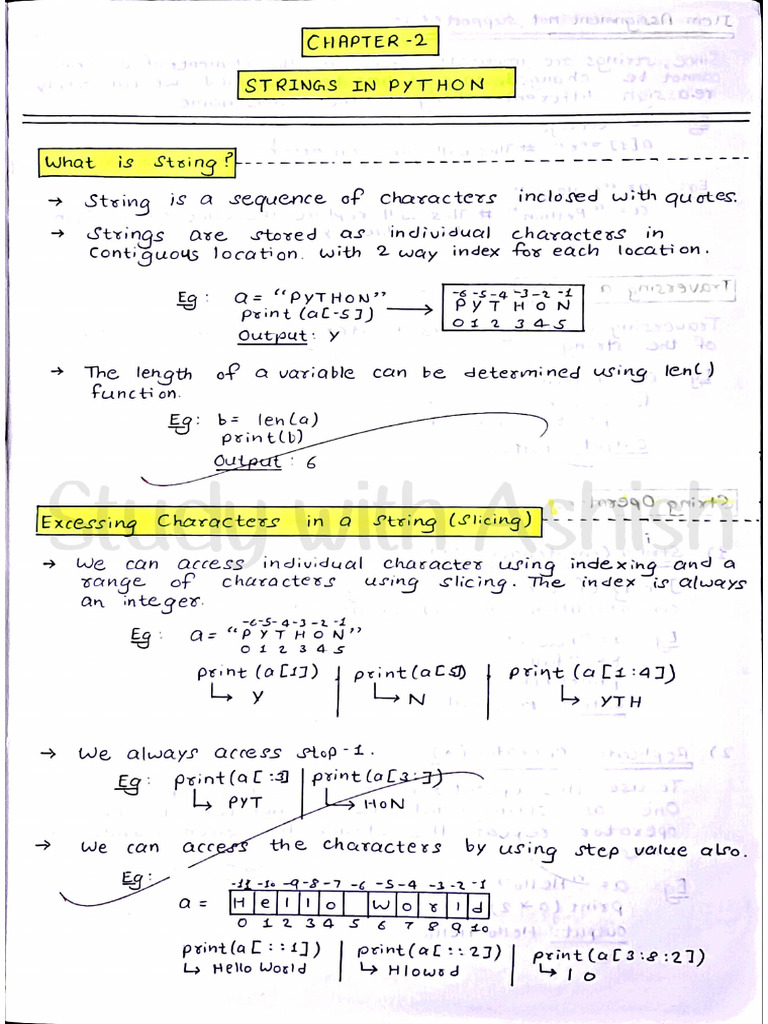 CHAPTER-2
STRINGS IN PYTHON
What is String?
→ String is a sequence of characters inclosed with quotes.
→ Strings are stored as individual characters in
contiguous location. with 2 way index for each location.
Eg: a = "PYTHON"
print (a[-5])
Output: Y
-6 -5 -4 -3 -2 -1
P Y T H O N
0 1 2 3 4 5
→ The length of a variable can be determined using len()
function.
Eg: b = len(a)
print(b)
Output : 6
Study with Ashish
Excessing Characters in a String (Slicing)
→ We can access individual character using indexing and a
range of characters using slicing. The index is always
an integer.
-6 -5 -4 -3 -2 -1
Eg: a = "PYTHON"
0 1 2 3 4 5
print (a[1]) | print(a[5]) | print (a[1:4])
↳ Y | ↳ N | ↳ YTH
→ We always access stop-1.
Eg: print(a[:3] | print(a[3:])
↳ PYT | ↳ HON
→ We can access the characters by using step value also.
Eg:
-11 -10 -9 -8 -7 -6 -5 -4 -3 -2 -1
a = H e l l o W o r l d
0 1 2 3 4 5 6 7 8 9 10
print(a[::1]) | print(a[::2]) | print(a[3:8:2])
↳ Hello World | ↳ Hlowrd | ↳ l o